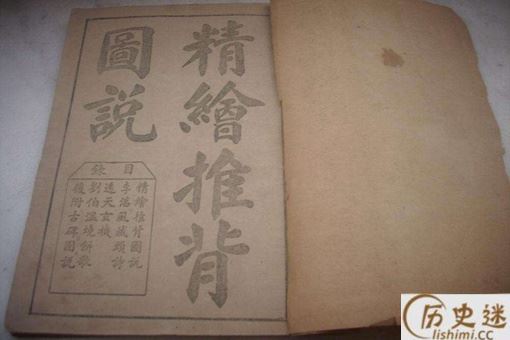 精繪推背
圖說
目錄
精繪推背圖說
李淳風藏頭詩
透天玄機
劉伯溫燒餅歌
後附古碑圖說
历史迷
lishimi.cc